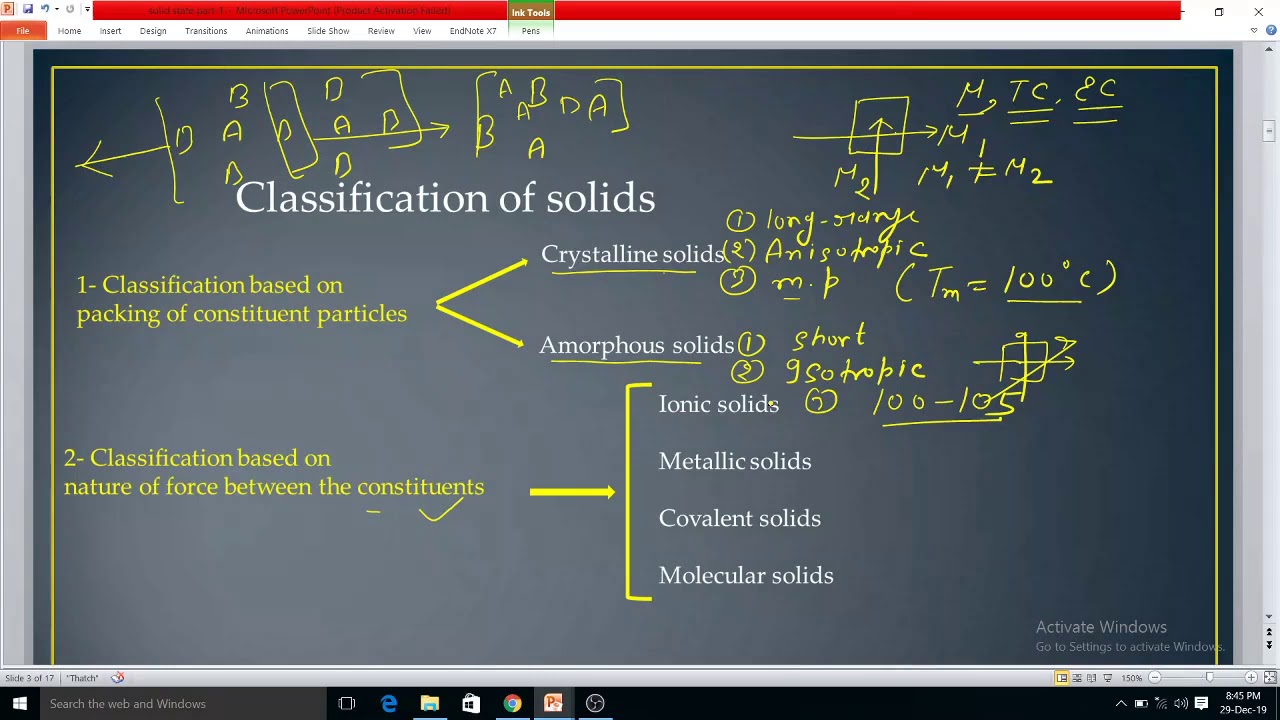 solid state part 1 - Microsoft PowerPoint (Product Activation Failed)
Ink Tools
File Home Insert Design Transitions Animations Slide Show Review View EndNote X7 Pens
B
A
B
D
D
D
A
D
B
A B D A
A
B
A
M, TC, EC
M1
M2
M1 ≠ M2
Classification of solids
1- Classification based on
packing of constituent particles
Crystalline solids
① long-range
(2) Anisotropic
③ m.p (Tm = 100°C)
Amorphous solids
① short
② Isotropic
③ 100-105
2- Classification based on
nature of force between the constituents
Ionic solids
Metallic solids
Covalent solids
Molecular solids
Activate Windows
Go to Settings to activate Windows.
Slide 3 of 17 "Thatch" 150%
Search the web and Windows
8:45 PM
29-Dec-19